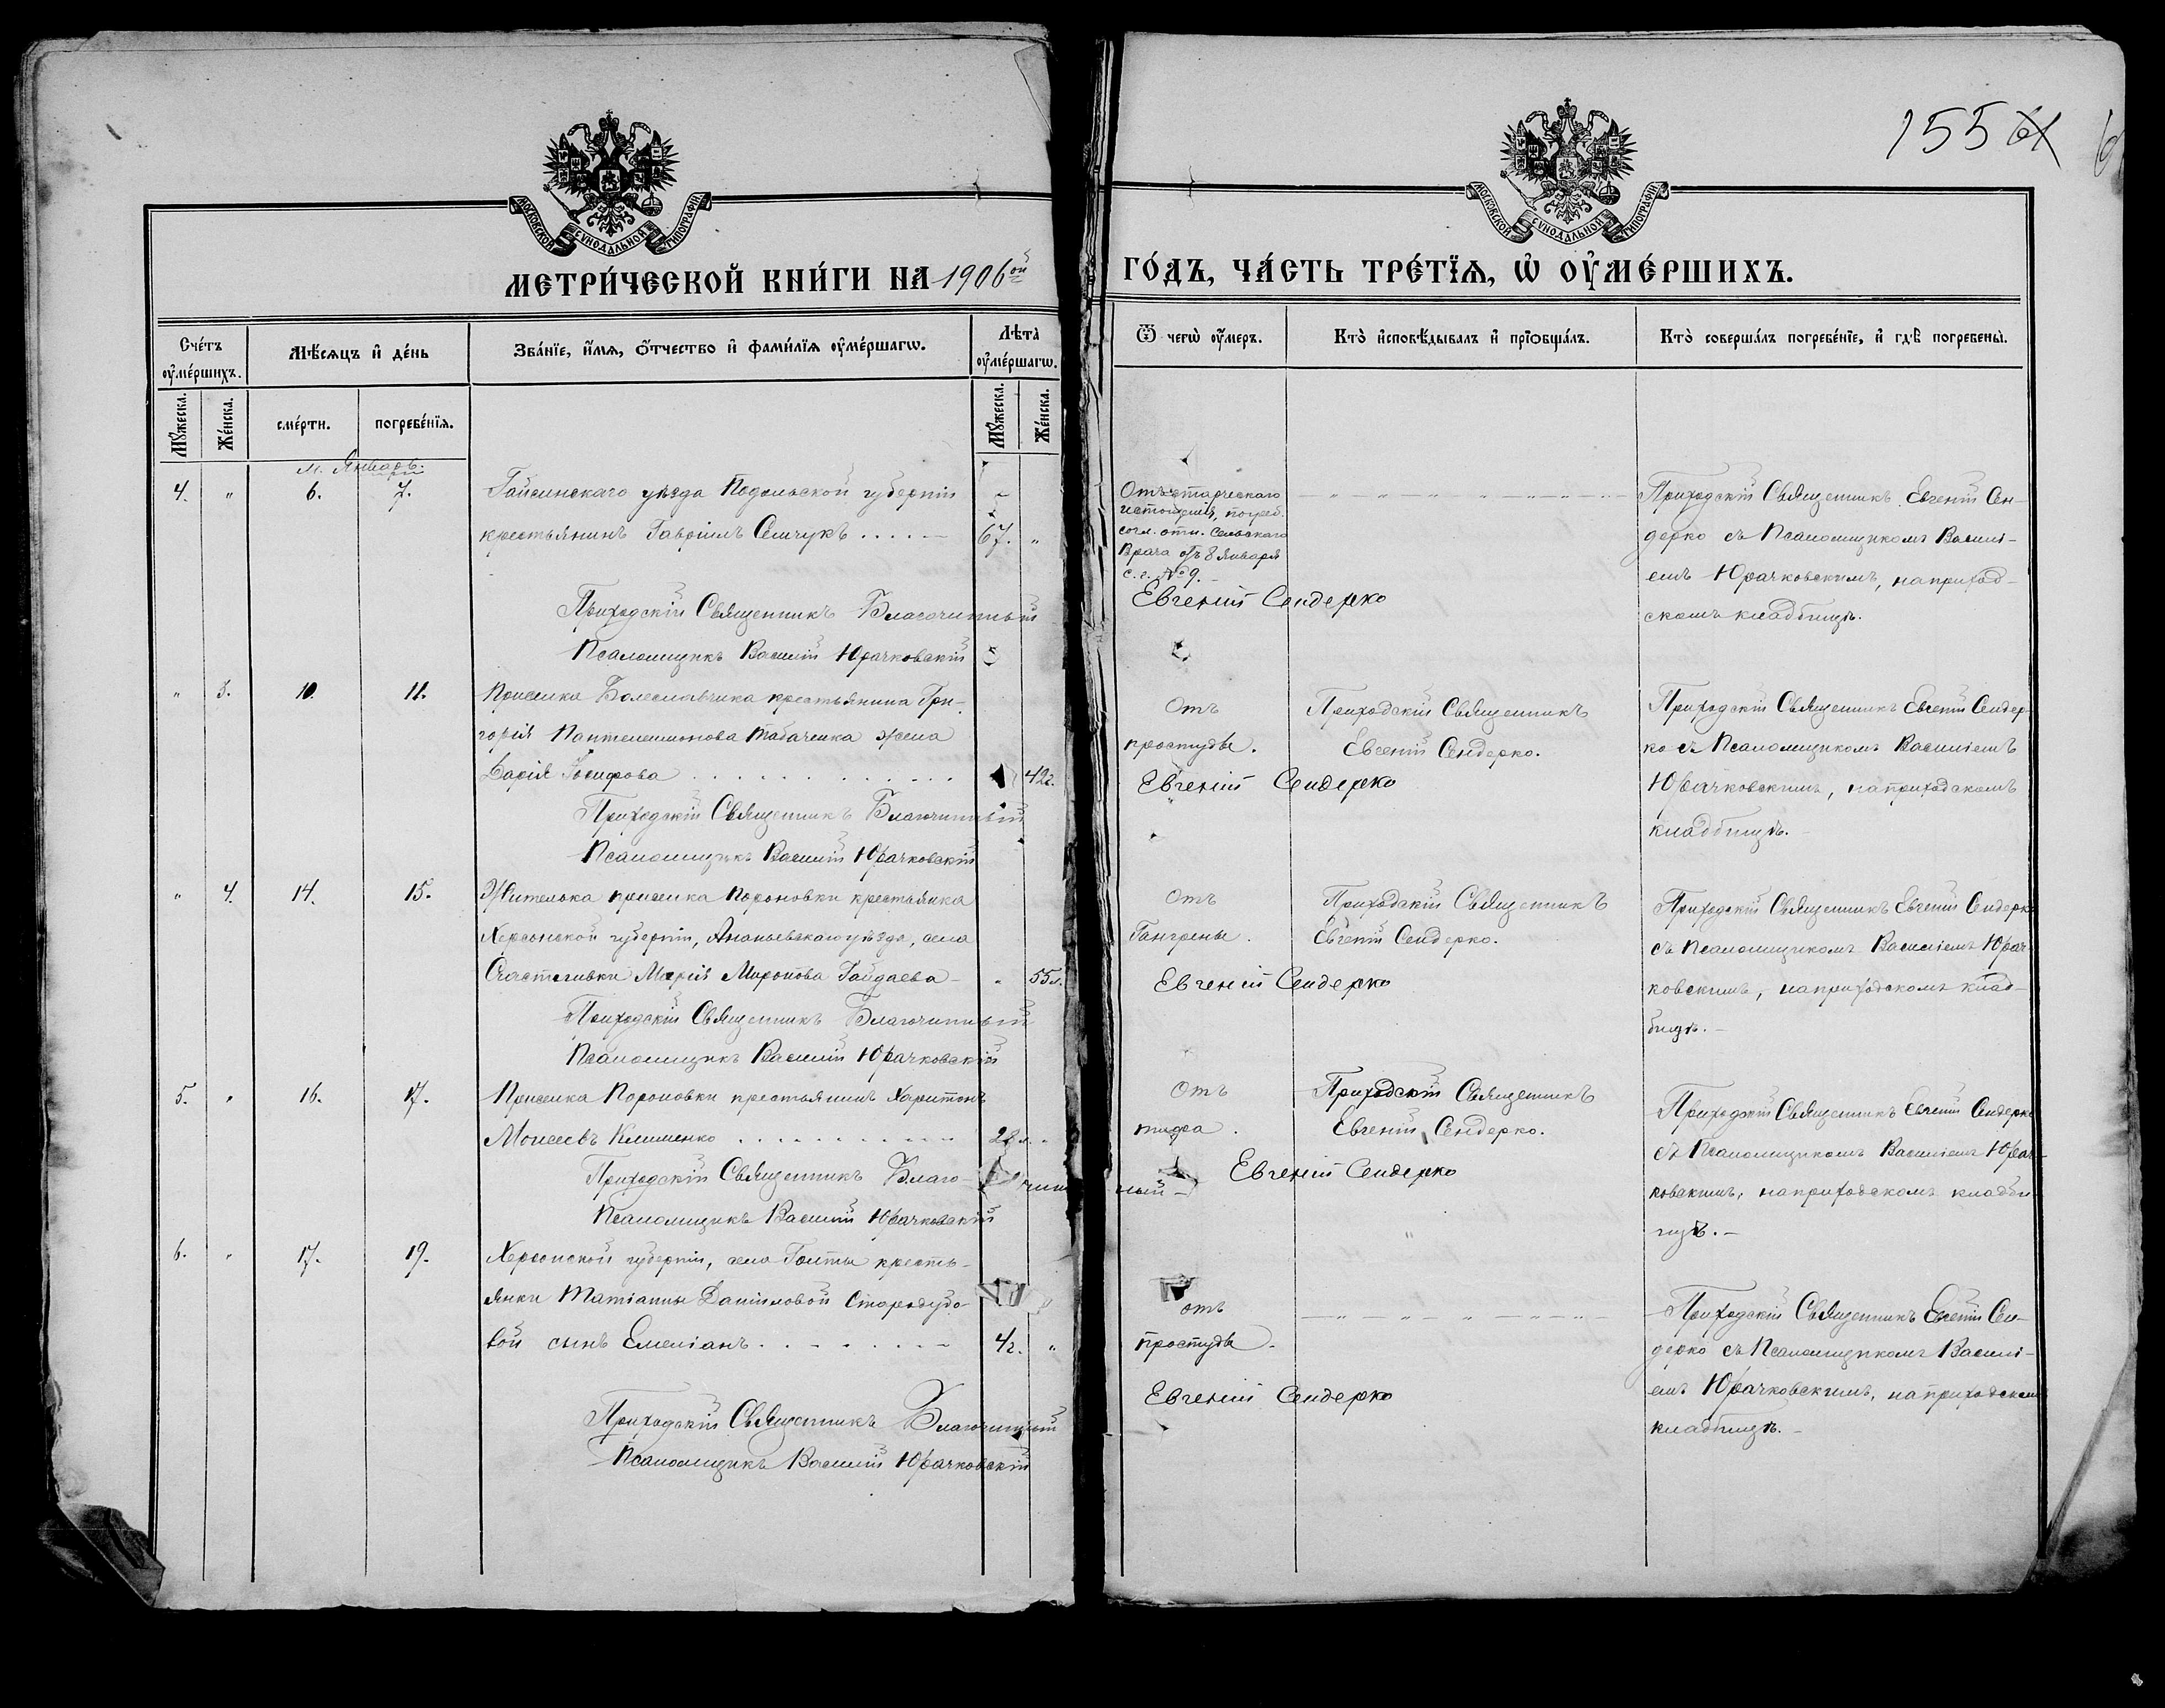 155
МОСКОВСКОЙ СѴНОДАЛЬНОЙ ТИПОГРАФІИ
МОСКОВСКОЙ СѴНОДАЛЬНОЙ ТИПОГРАФІИ
МЕТРИ́ЧЕСКОЙ КНИ́ГИ НА 1906ой
ГО́ДЪ, ЧА́СТЬ ТРЕ́ТЇѦ, Ѡ҆ ОУ҆МЕ́РШИХЪ.
Сче́тъ оу҆ме́ршихъ.
Мѣ́сѧцъ и҆ де́нь
Зва́нїе, и҆́мѧ, ѻ҆́тчество и҆ фами́лїѧ оу҆ме́ршагѡ.
Лѣта̀ оу҆ме́ршагѡ.
Ѿ чегѡ̀ оу҆́меръ.
Кто̀ и҆сповѣ́дывалъ и҆ прїѡбща́лъ.
Кто̀ соверша́лъ погребе́нїе, и҆ гдѣ̀ погребены̀.
Мꙋ́жеска.
Же́нска.
сме́рти.
погребе́нїѧ.
Мꙋ́жеска.
Же́нска.
м. Январь.
4. " 6. 7.
Гайсинскаго уѣзда Подольской губерніи
крестьянинъ Гавріилъ Семчукъ 67. "
Приходскій Священникъ Благочинный
Псаломщикъ Василій Юрачковскій
Отъ старческаго
истощенія, погреб.
согл. отн. Сельскаго
Врача отъ 8 Января
с.г. № 9.
Евгеній Сендерко
Приходскій Священникъ Евгеній Сен-
дерко съ Псаломщикомъ Васині-
емъ Юрачковскимъ, на приход-
скомъ кладбищѣ.
" 3. 10. 11.
Приселка Болеславчика крестьянина Гри-
горія Пантелеимонова Табаченка жена
Дарія Іосифова 42г.
Приходскій Священникъ Благочинный
Псаломщикъ Василій Юрачковскій
Отъ
простуды.
Приходскій Священникъ
Евгеній Сендерко.
Евгеній Сендерко
Приходскій Священникъ Евгеній Сендер-
ко съ Псаломщикомъ Василіемъ
Юрачковскимъ, на приходскомъ
кладбищѣ.
" 4. 14. 15.
Жителька приселка Пороновки крестьянка
Херсонской губерніи, Ананьевскаго уѣзда, села
Счастливки Марія Миронова Гайдаева - " 55л.
Приходскій Священникъ Благочинный
Псаломщикъ Василій Юрачковскій
Отъ
Гангрены.
Приходскій Священникъ
Евгеній Сендерко.
Евгеній Сендерко
Приходскій Священникъ Евгеній Сендерко
съ Псаломщикомъ Василіемъ Юрач-
ковскимъ, на приходскомъ клад-
бищѣ. -
5. " 16. 17.
Приселка Пороновки крестьянинъ Харитонъ
Моисеевъ Клименко 28 л. "
Приходскій Священникъ Благо- чин
Псаломщикъ Василій Юрачковскій
Отъ
тифа.
ный -
Приходскій Священникъ
Евгеній Сендерко.
Евгеній Сендерко
Приходскій Священникъ Евгеній Сендерко
съ Псаломщикомъ Василіемъ Юрач-
ковскимъ, на приходскомъ кладби-
щѣ. -
6. " 17. 19.
Херсонской губерніи, села Голты кресть-
янки Татіаны Даниловой Стародубо-
вой сынъ Емеліанъ 4г. "
Приходскій Священникъ Благочинный
Псаломщикъ Василій Юрачковскій
отъ
простуды.
Евгеній Сендерко
Приходскій Священникъ Евгеній Сен-
дерко съ Псаломщикомъ Василі-
емъ Юрачковскимъ, на приходскомъ
кладбищѣ. -